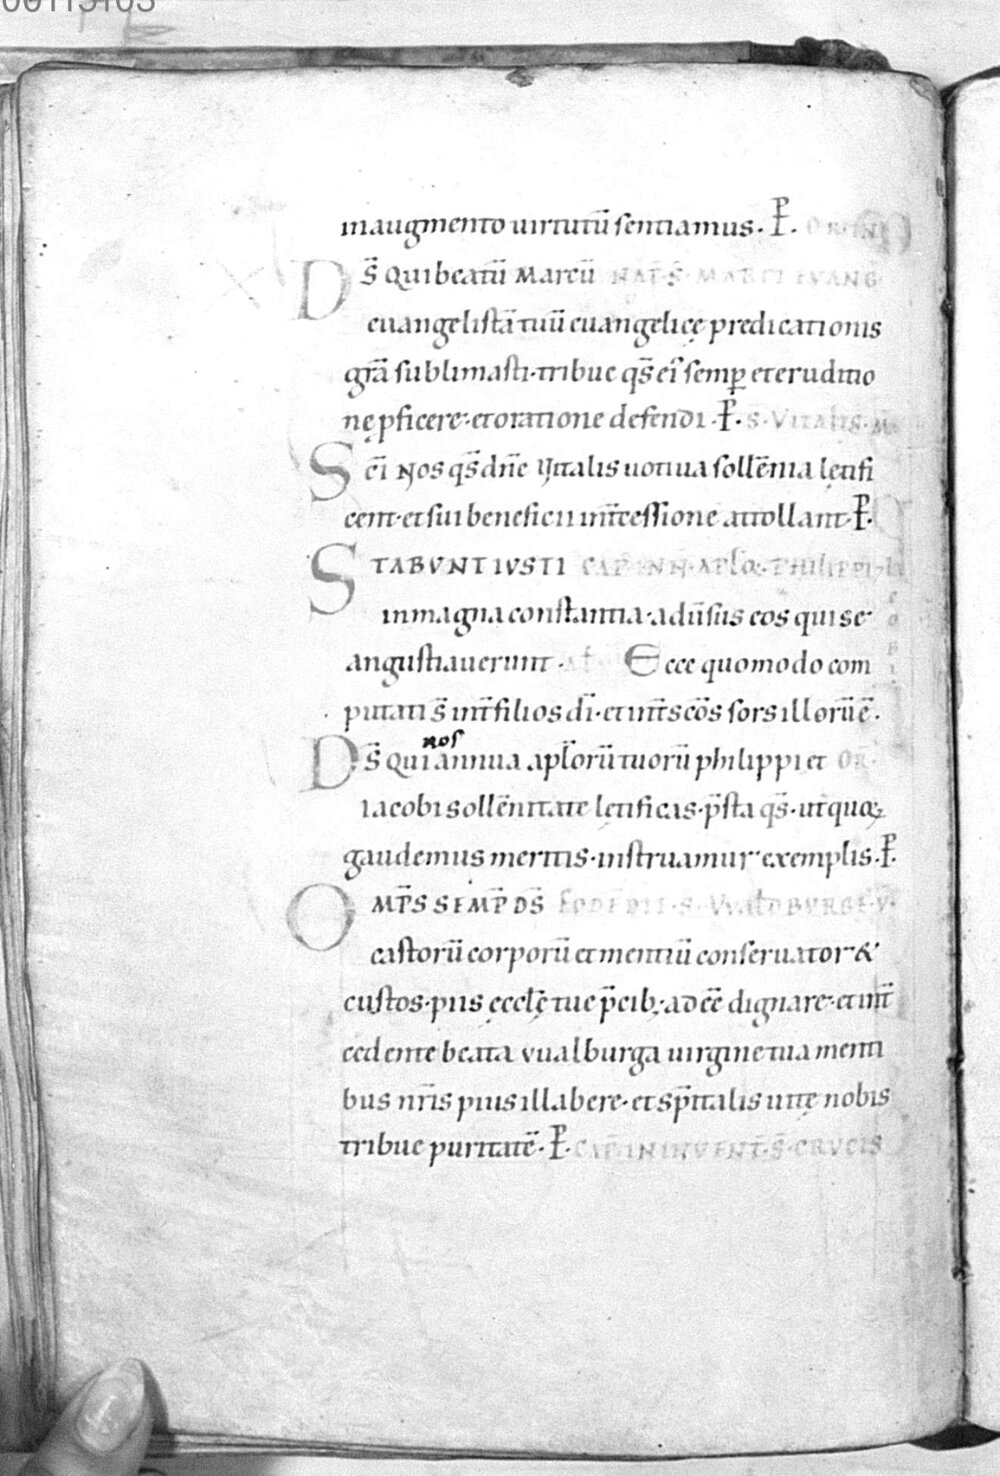 in augmento uirtutū sentiamus· P̄·
D s̄ Qui beatū Marcū NAT̄ S̄ MARCI EVANG
euangelistā tuū euangelicę predicationis
gr̄a sublimasti· tribue qs̄ ei ̄ semp̲ et eruditio
nę p̲ficere· et oratione defendi· P̄· S· Vitalis· M̄
S cī Nos qs̄ dn̄e Vitalis uotiua sollēnia lętifi
cent· et sui beneficii int̄cessione attollant· P̄·
S TABUNT IUSTI CAP̄ IN N̄ APLOR̄· PHILIPPI·
in magna constantia· aduīsus eos qui se
angustiauerunt· Ecce quomodo com
putati s̄ int̄ filios dī· et int̄ scōs sors illorū ē·
nos
D s̄ Qui annua apl̄orū tuorū philippi et OR̄·
iacobi sollēnitate lętificas· p̄sta qs̄· ut quoꝝ
gaudemus meritis· instruamur exemplis· P̄·
O MP̄S SEMP̄ DS̄ EODĒ DIE· S· WaldBURGE· V·
castorū corporū et mentiū conseruator &
custos· piis ęcclę̄ tuę p̄cib;· adeē̄ dignare· et int̄
cedente beata vualburga uirgine tua menti
bus nr̄is pius illabere· et sp̄italis uitę nobis
tribue puritatē· P̄· CAP̄ IN INVENT̄ S̄ CRUCIS